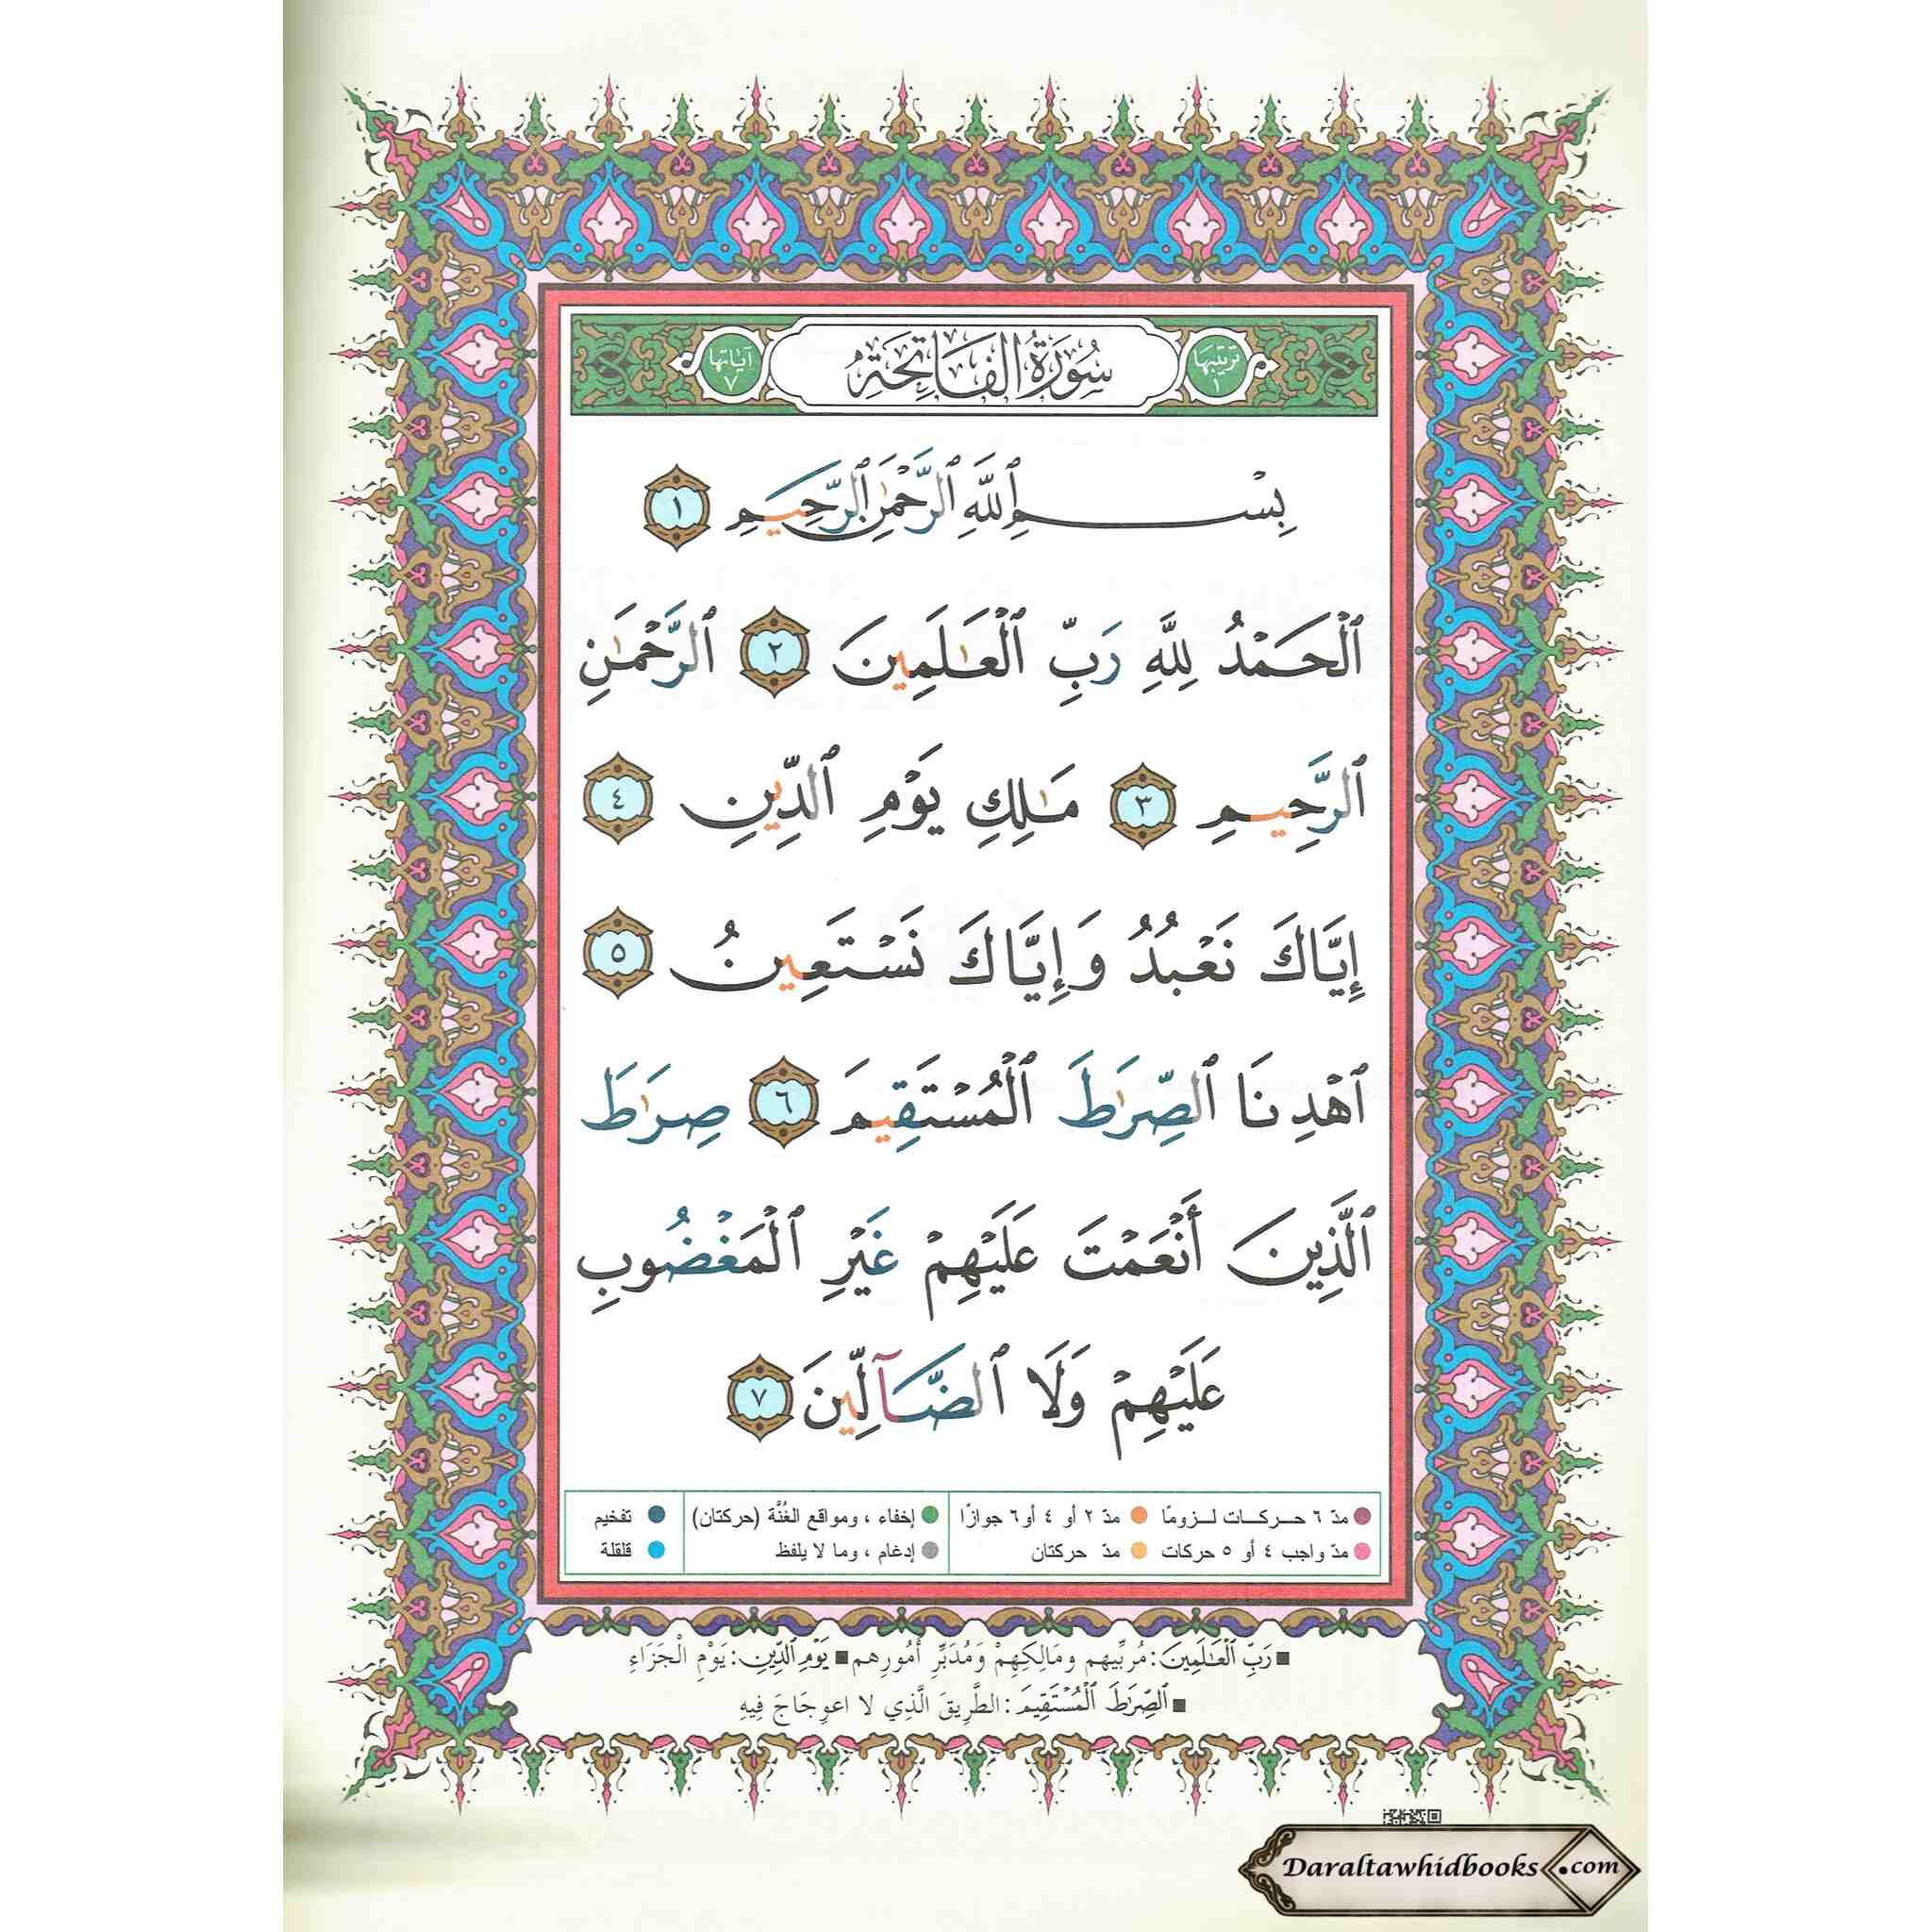 ترتيبها ١ سُورَةُ الفَاتِحَةِ آيَاتها ٧
بِسْمِ ٱللَّهِ ٱلرَّحْمَٰنِ ٱلرَّحِيمِ ١
ٱلْحَمْدُ لِلَّهِ رَبِّ ٱلْعَٰلَمِينَ ٢ ٱلرَّحْمَٰنِ
ٱلرَّحِيمِ ٣ مَٰلِكِ يَوْمِ ٱلدِّينِ ٤
إِيَّاكَ نَعْبُدُ وَإِيَّاكَ نَسْتَعِينُ ٥
ٱهْدِنَا ٱلصِّرَٰطَ ٱلْمُسْتَقِيمَ ٦ صِرَٰطَ
ٱلَّذِينَ أَنْعَمْتَ عَلَيْهِمْ غَيْرِ ٱلْمَغْضُوبِ
عَلَيْهِمْ وَلَا ٱلضَّآلِّينَ ٧
مدّ ٦ حركات لزومًا مدّ ٢ أو ٤ أو ٦ جوازًا إخفاء ، ومواقع الغُنَّة (حركتان) تفخيم
مدّ واجب ٤ أو ٥ حركات مدّ حركتان إدغام ، وما لا يلفظ قلقلة
رَبِّ ٱلْعَٰلَمِينَ: مُرَبِّيهم ومَالِكِهِمْ وَمُدَبِّرِ أمُورِهم يَوْمِ ٱلدِّينِ: يَوْمِ الْجَزَاءِ
ٱلصِّرَٰطَ ٱلْمُسْتَقِيمَ: الطَّرِيقَ الَّذِي لا اعوِجَاجَ فِيهِ
Daraltawhidbooks.com